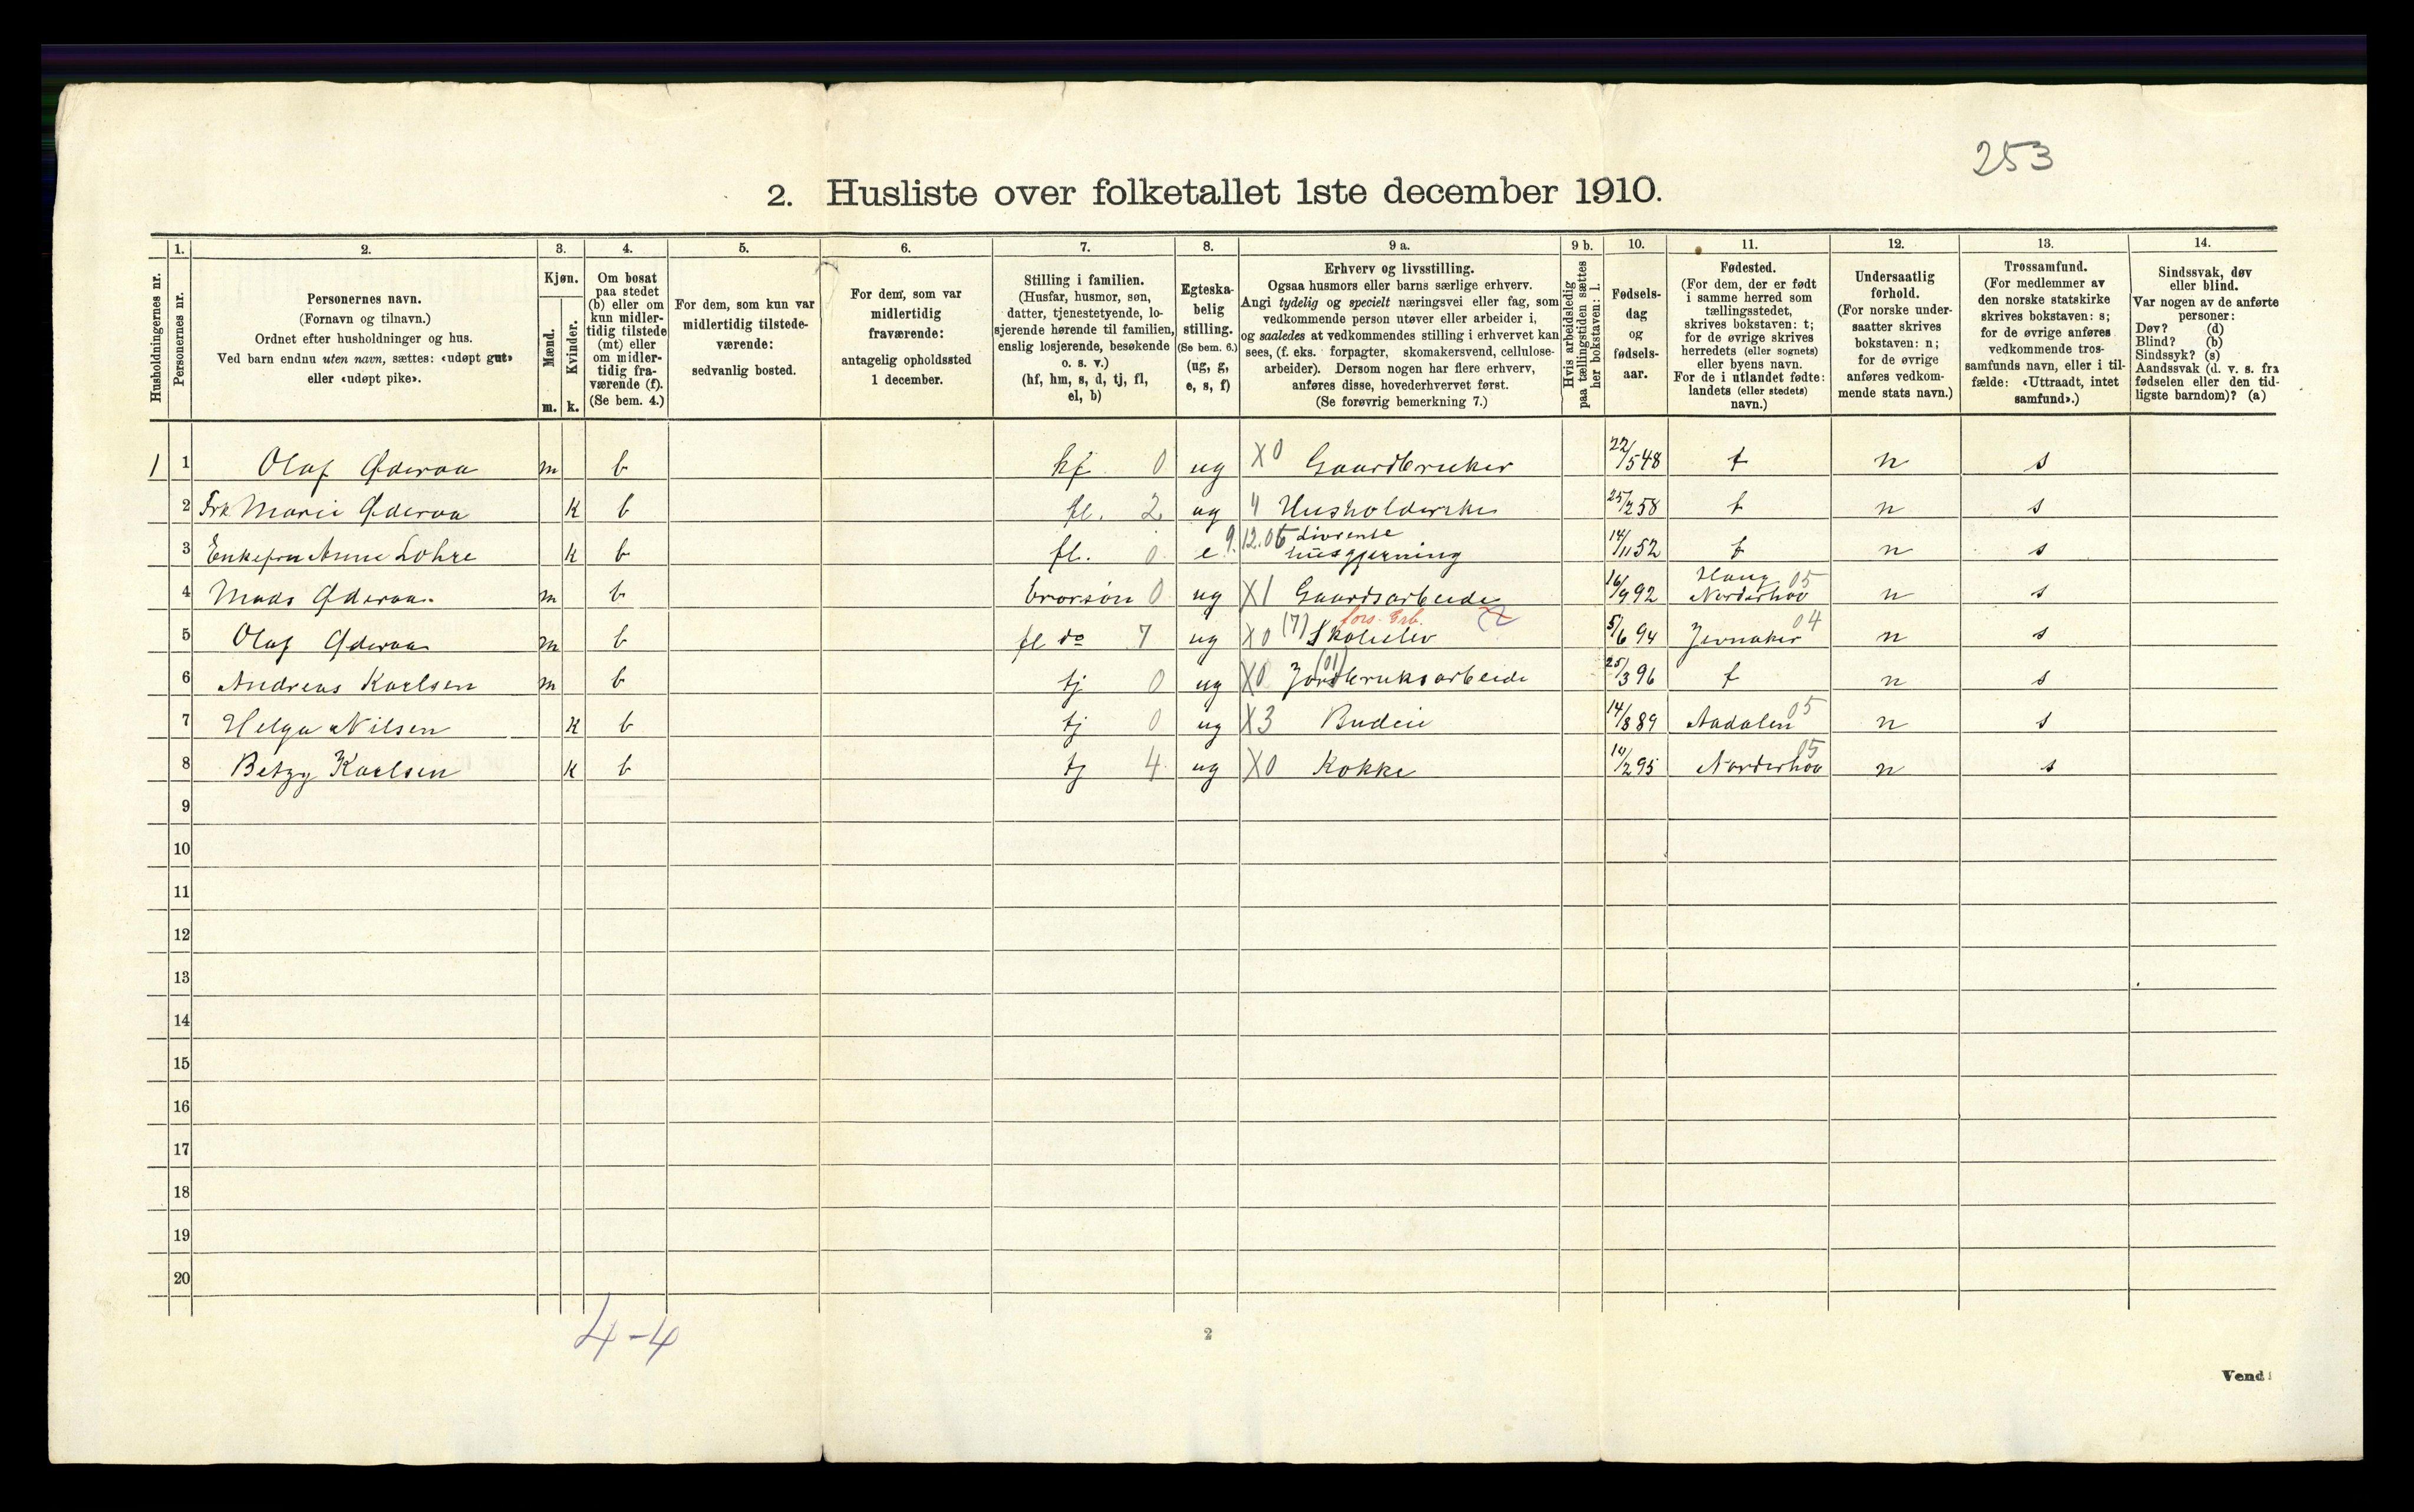 253
2. Husliste over folketallet 1ste december 1910.
Husholdningernes nr.
1.
Personernes nr.
2.
Personernes navn.
(Fornavn og tilnavn.)
Ordnet efter husholdninger og hus.
Ved barn endnu uten navn, sættes: «udøpt gut»
eller «udøpt pike».
3.
Kjøn.
Mænd.
Kvinder.
m. k.
4.
Om bosat
paa stedet
(b) eller om
kun midler-
tidig tilstede
(mt) eller
om midler-
tidig fra-
værende (f).
(Se bem. 4.)
5.
For dem, som kun var
midlertidig tilstede-
værende:
sedvanlig bosted.
6.
For dem, som var
midlertidig
fraværende:
antagelig opholdssted
1 december.
7.
Stilling i familien.
(Husfar, husmor, søn,
datter, tjenestetyende, lo-
sjerende hørende til familien,
enslig losjerende, besøkende
o. s. v.)
(hf, hm, s, d, tj, fl,
el, b)
8.
Egteska-
belig
stilling.
(Se bem. 6.)
(ug, g,
e, s, f)
9 a.
Erhverv og livsstilling.
Ogsaa husmors eller barns særlige erhverv.
Angi tydelig og specielt næringsvei eller fag, som
vedkommende person utøver eller arbeider i,
og saaledes at vedkommendes stilling i erhvervet kan
sees, (f. eks. forpagter, skomakersvend, cellulose-
arbeider). Dersom nogen har flere erhverv,
anføres disse, hovederhvervet først.
(Se forøvrig bemerkning 7.)
9 b.
Hvis arbeidsledig
paa tællingstiden sættes
her bokstaven: l.
10.
Fødsels-
dag
og
fødsels-
aar.
11.
Fødested.
(For dem, der er født
i samme herred som
tællingsstedet,
skrives bokstaven: t;
for de øvrige skrives
herredets (eller sognets)
eller byens navn.
For de i utlandet fødte:
landets (eller stedets)
navn.)
12.
Undersaatlig
forhold.
(For norske under-
saatter skrives
bokstaven: n;
for de øvrige
anføres vedkom-
mende stats navn.)
13.
Trossamfund.
(For medlemmer av
den norske statskirke
skrives bokstaven: s;
for de øvrige anføres
vedkommende tros-
samfunds navn, eller i til-
fælde: «Uttraadt, intet
samfund».)
14.
Sindssvak, døv
eller blind.
Var nogen av de anførte
personer:
Døv? (d)
Blind? (b)
Sindssyk? (s)
Aandssvak (d. v. s. fra
fødselen eller den tid-
ligste barndom)? (a)
1 1 Olaf Øderaa m b hf 0 ug X0 Gaardbruker 22/5 48 t n s
2 Frk. Marie Øderaa k b fl. 2 ug " Husholderske 25/2 58 t n s
3 Enkefru Anne Lohre k b fl. 0 e 9.12.06 Livrente husgjerning 14/11 52 t n s
4 Mads Øderaa. m b brorsøn 0 ug X1 Gaardsarbeide 16/9 92 Haug Norderhov 05 n s
5 Olaf Øderaa m b fl do 7 ug X0 (7) Skoleelev fors. Grb. 5/6 94 Jevnaker 04 n s
6 Andreas Karlsen m b tj 0 ug X0 (01) Jordbruksarbeide 25/3 96 t n s
7 Helga Nilsen k b tj 0 ug X3 Budeie 14/8 89 Aadalen 05 n s
8 Betzy Karlsen k b tj 4 ug X0 Kokke 14/2 95 Norderhov 05 n s
9
10
11
12
13
14
15
16
17
18
19
20
4-4
2
Vend!